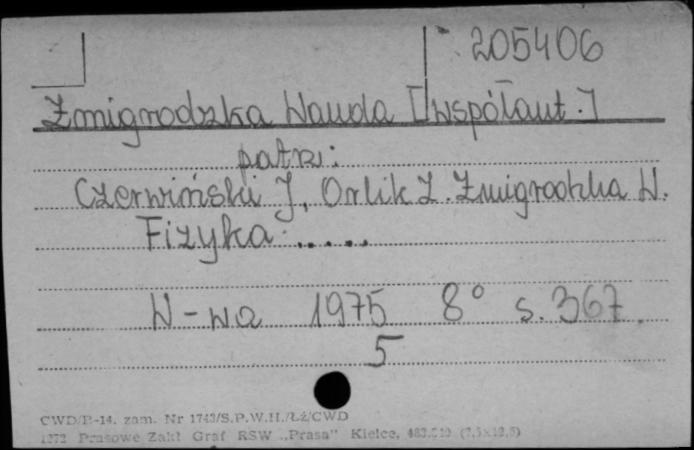 205406
Żmigrodzka Wanda [współaut.]
patrz:
Czerwiński J., Orlik Z. Żmigrodzka W.
Fizyka.....
W-wa 1975 8° s. 367.
5
CWD/B-14. zam. Nr 1743/S.P.W.H./Łź/CWD
Prasowe Zakł Graf RSW „Prasa" Kielce,